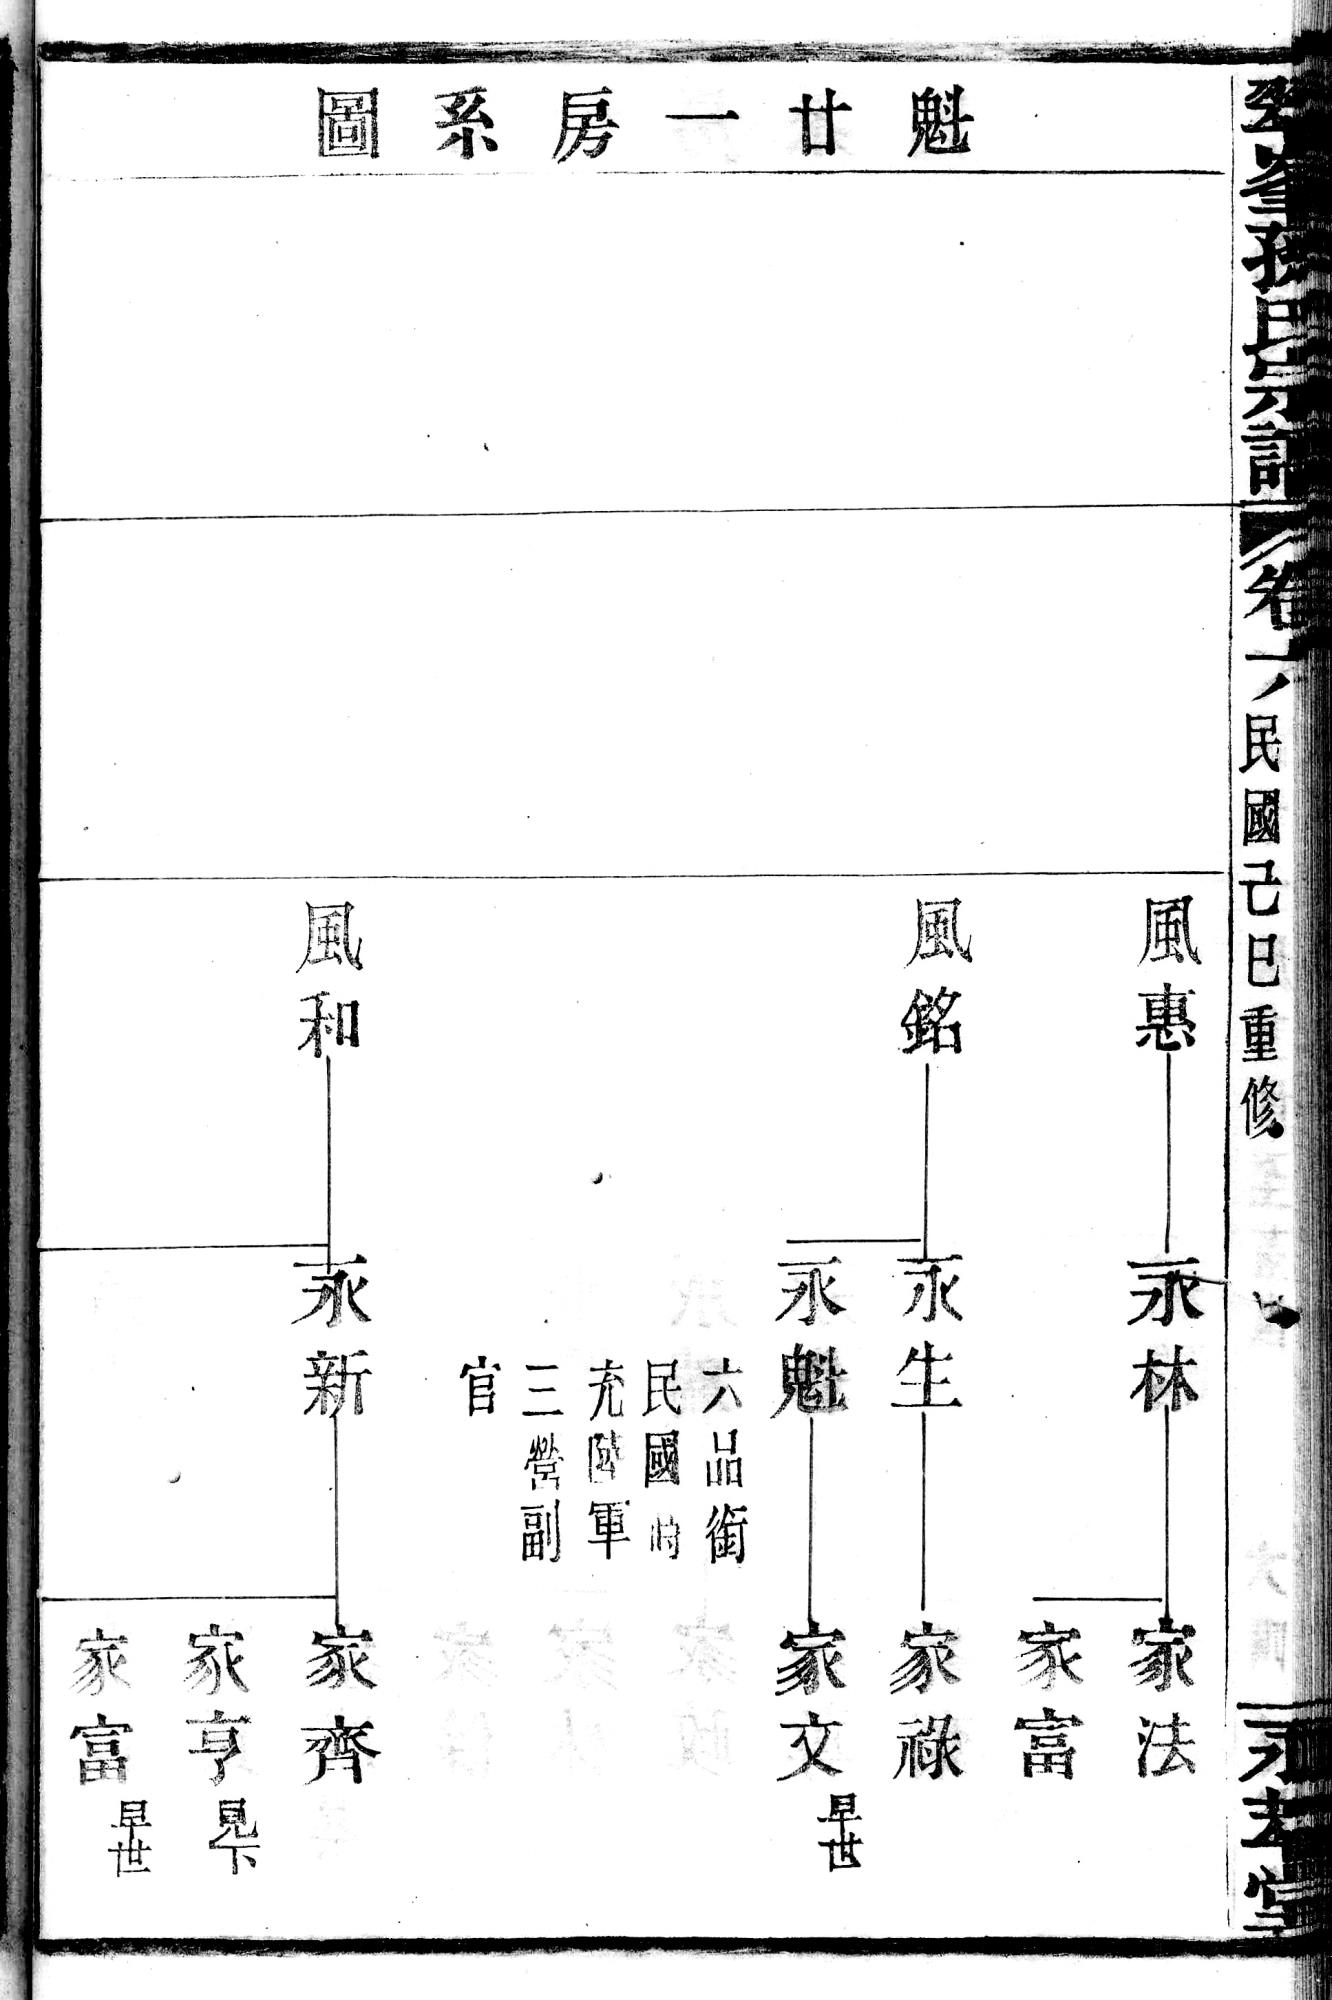 魁廿一房系圖
孫氏宗譜
卷
民國己巳重修
堂
風惠
風銘
風和
永林
永生
永魁
六品銜
民國時
充陸軍
三營副
官
永新
家法
家富
家祿
家文 早世
家齊
家亨 見下
家富 早世